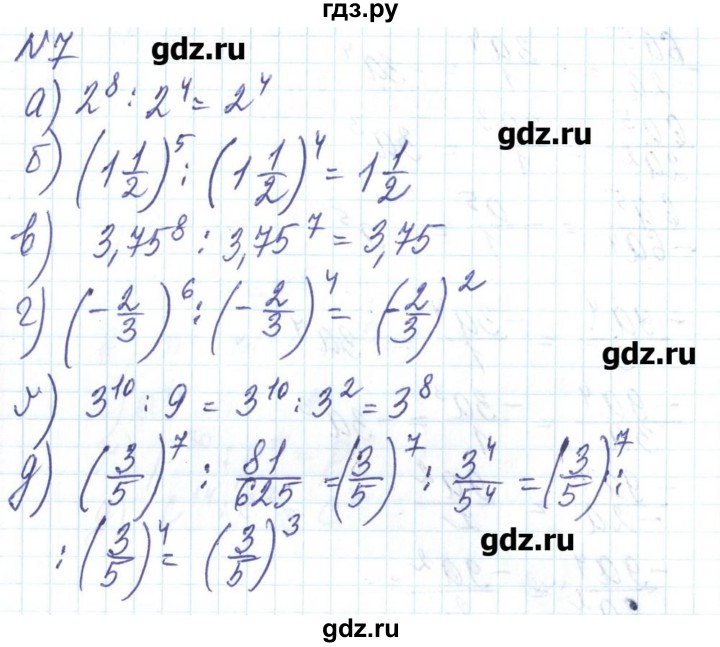 гдз.ру
№7
gdz.ru
а) 2⁸ : 2⁴ = 2⁴
gdz.ru
б) (1 1/2)⁵ : (1 1/2)⁴ = 1 1/2
в) 3,75⁸ : 3,75⁷ = 3,75
г) (-2/3)⁶ : (-2/3)⁴ = (-2/3)²
gdz.ru
м) 3¹⁰ : 9 = 3¹⁰ : 3² = 3⁸
д) (3/5)⁷ : 81/625 = (3/5)⁷ : 3⁴/5⁴ = (3/5)⁷ :
gdz.ru
: (3/5)⁴ = (3/5)³
gdz.ru